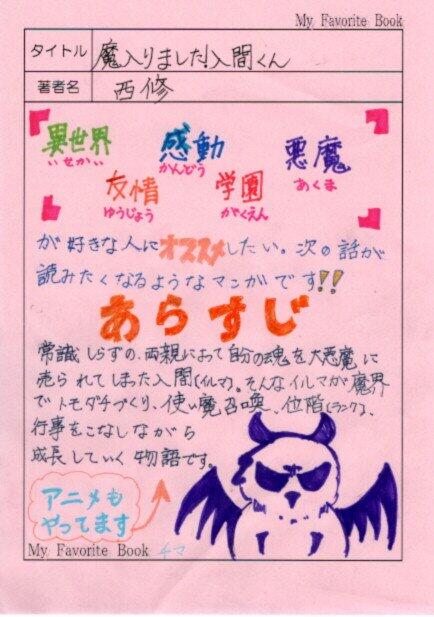 My Favorite Book
タイトル 魔入りました!入間くん
著者名 西修
異世界 感動 悪魔
いせかい かんどう あくま
友情 学園
ゆうじょう がくえん
が好きな人にオススメしたい。次の話が
読みたくなるようなマンガです!!
あらすじ
常識しらずの、両親によって自分の魂を大悪魔に
売られてしまった入間(イルマ)。そんなイルマが魔界
でトモダチづくり、使い魔召喚、位階(ランク)、
行事をこなしながら
成長していく物語です。
アニメも
やってます
My Favorite Book